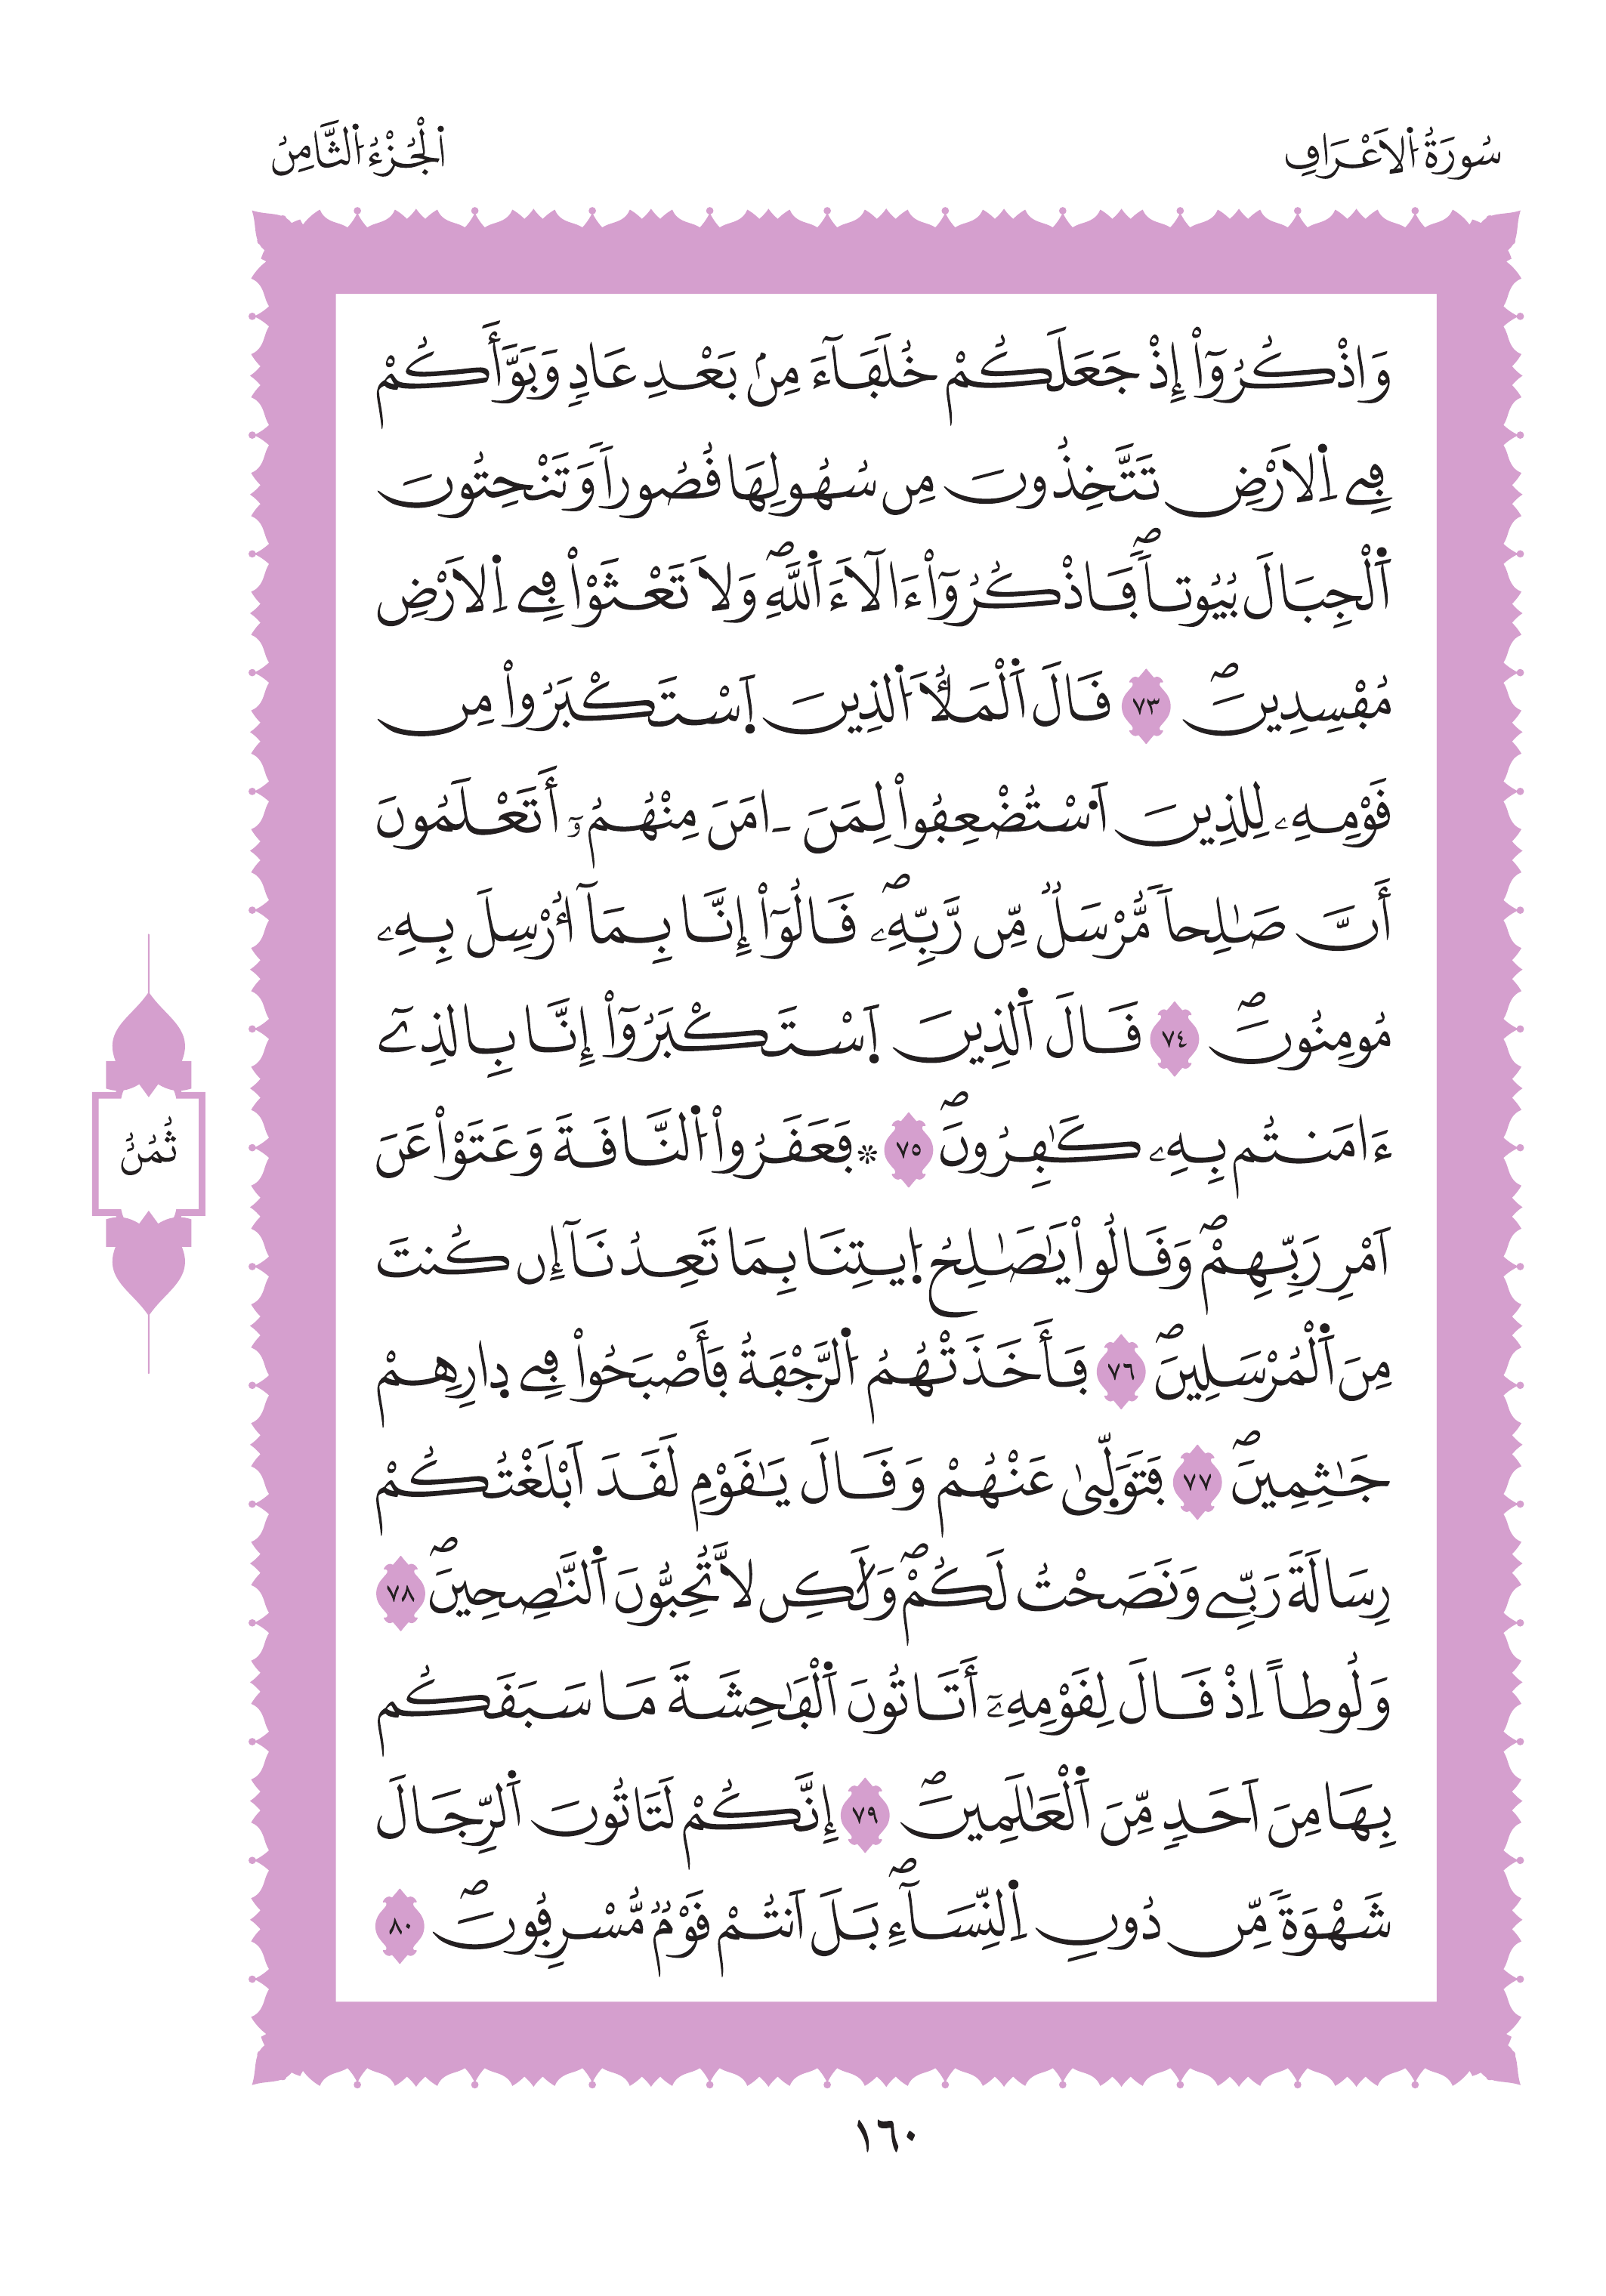 سُورَةُ اُ۬لَاعْرَافِ
اُ۬لْجُزْءُ اُ۬لثَّامِنُ
وَاذْكُرُوٓاْ إِذْ جَعَلَكُمْ خُلَفَآءَ مِنۢ بَعْدِ عَادٖ وَبَوَّأَكُمْ
فِے اِ۬لَارْضِ تَتَّخِذُونَ مِن سُهُولِهَا قُصُوراٗ وَتَنْحِتُونَ
اَ۬لْجِبَالَ بُيُوتاٗۖ فَاذْكُرُوٓاْ ءَالَآءَ اَ۬للَّهِۖ وَلَا تَعْثَوْاْ فِے اِ۬لَارْضِ
مُفْسِدِينَۖ ٧٣ قَالَ اَ۬لْمَلَأُ اُ۬لذِينَ اَ۪سْتَكْبَرُواْ مِن
قَوْمِهِۦ لِلذِينَ اَ۟سْتُضْعِفُواْ لِمَنَ ـ امَنَ مِنْهُمُۥٓ أَتَعْلَمُونَ
أَنَّ صَٰلِحاٗ مُّرْسَلٞ مِّن رَّبِّهِۦۖ قَالُوٓاْ إِنَّا بِمَآ أُرْسِلَ بِهِۦ
مُومِنُونَۖ ٧٤ قَالَ اَ۬لذِينَ اَ۪سْتَكْبَرُوٓاْ إِنَّا بِالذِےٓ
ءَامَنتُم بِهِۦ كَٰفِرُونَۖ ٧٥ ۞ فَعَقَرُواْ اُ۬لنَّاقَةَ وَعَتَوْاْ عَنَ
اَمْرِ رَبِّهِمْۖ وَقَالُواْ يَٰصَٰلِحُ اُ۪يتِنَا بِمَا تَعِدُنَآ إِن كُنتَ
مِنَ اَ۬لْمُرْسَلِينَۖ ٧٦ فَأَخَذَتْهُمُ اُ۬لرَّجْفَةُ فَأَصْبَحُواْ فِے دِارِهِمْ
جَٰثِمِينَۖ ٧٧ فَتَوَلّ۪ىٰ عَنْهُمْ وَقَالَ يَٰقَوْمِ لَقَدَ اَبْلَغْتُكُمْ
رِسَالَةَ رَبِّے وَنَصَحْتُ لَكُمْۖ وَلَٰكِن لَّا تُحِبُّونَ اَ۬لنَّٰصِحِينَۖ ٧٨
وَلُوطاً اِذْ قَالَ لِقَوْمِهِۦٓ أَتَاتُونَ اَ۬لْفَٰحِشَةَ مَا سَبَقَكُم
بِهَا مِنَ اَحَدٖ مِّنَ اَ۬لْعَٰلَمِينَۖ ٧٩ إِنَّكُمْ لَتَاتُونَ اَ۬لرِّجَالَ
شَهْوَةٗ مِّن دُونِ اِ۬لنِّسَآءِۖ بَلَ اَنتُمْ قَوْمٞ مُّسْرِفُونَۖ ٨٠
ثُمُنُ
١٦٠